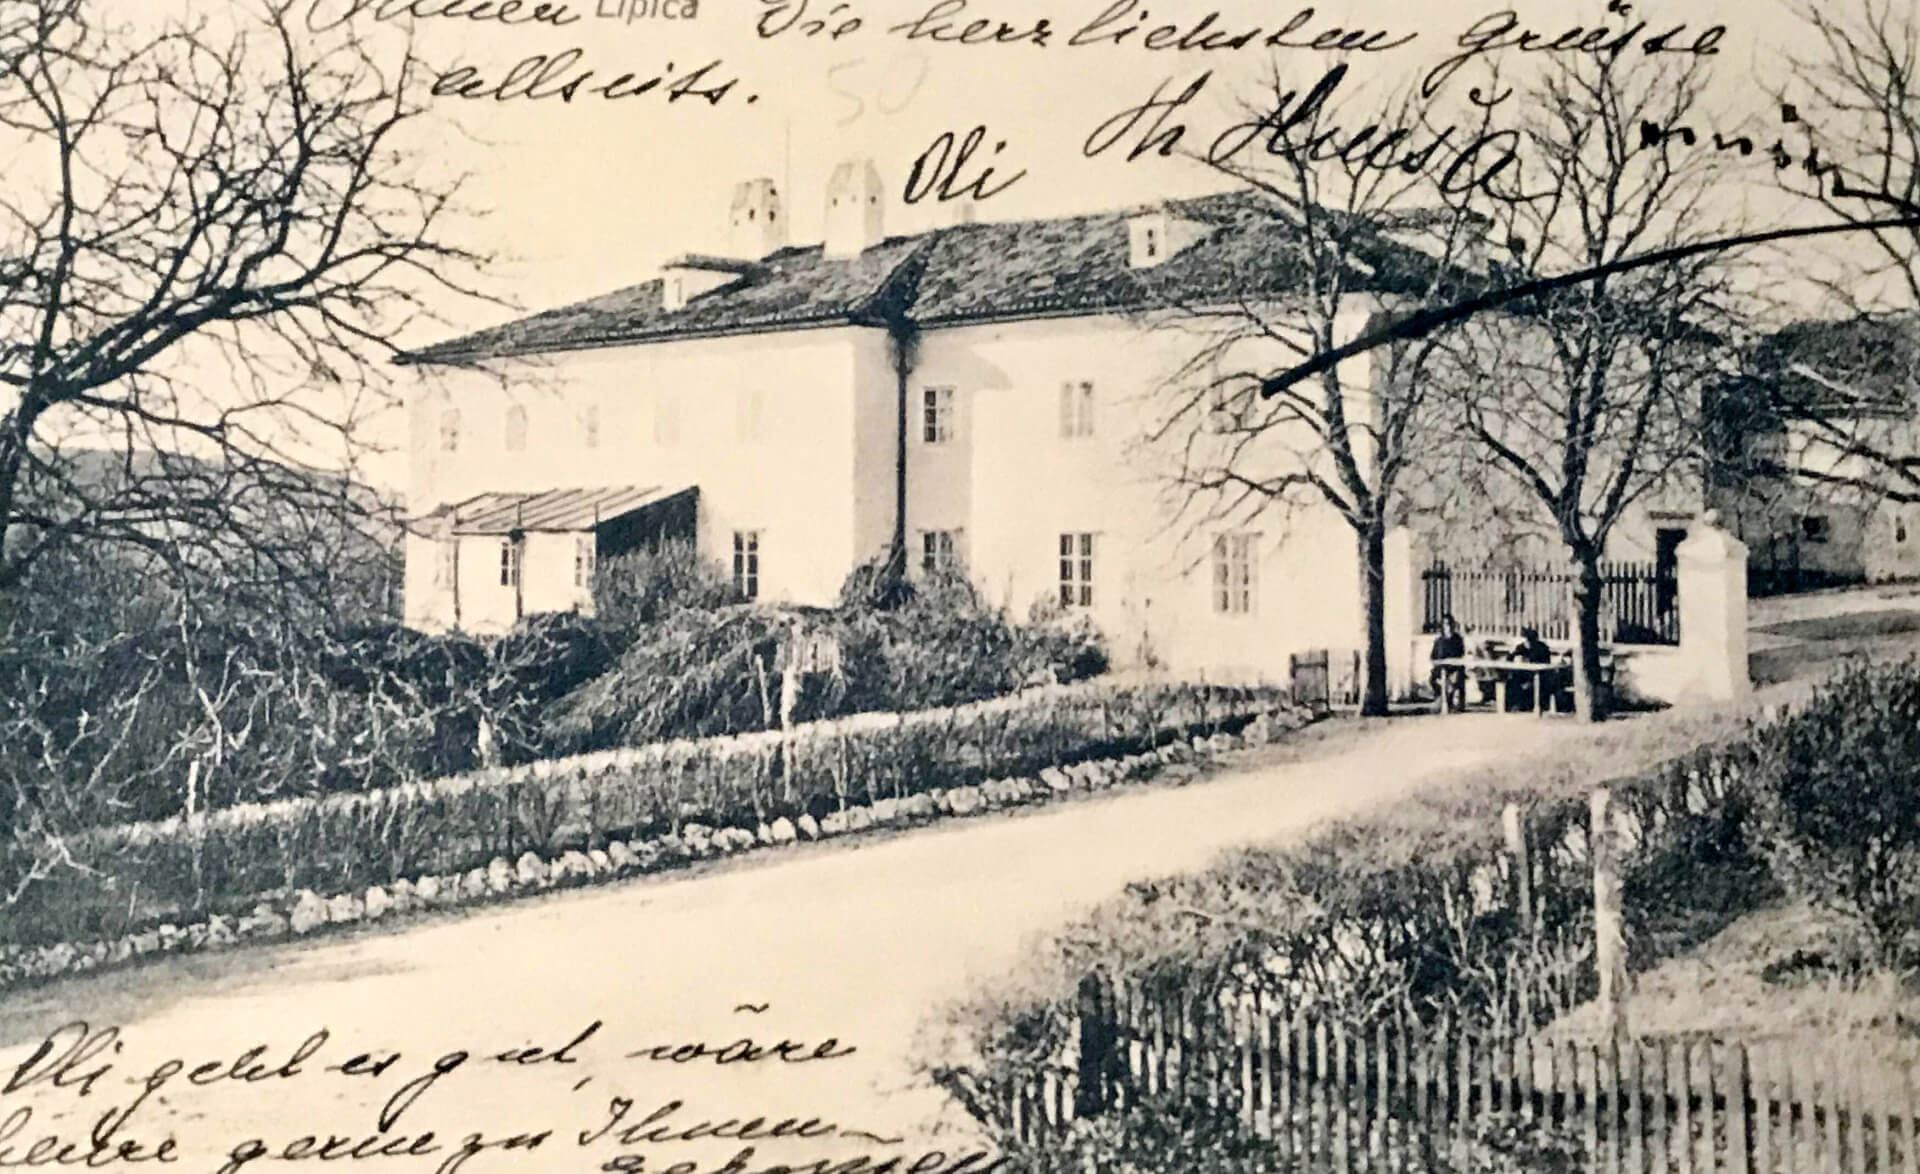 Ihnen Lipica Die herzlichsten Grüsse
allseits.
50
Oli Th Hussa
Oli geht es gut, wäre
heure gerne zu Ihnen
gekommen